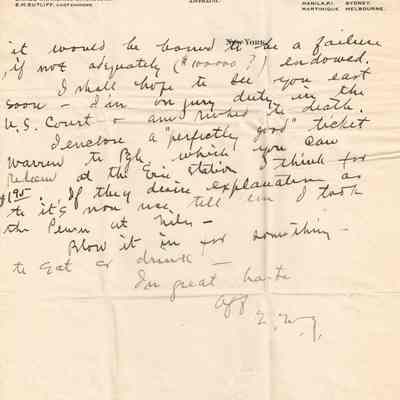 E.H. SUTLIFF, CUSTODIAN
MANILA, P.I. SYDNEY.
MARTINIQUE MELBOURNE.
New York
it would be bound to be a failure
if not adquately ($100000?) endowed.
I shall hope to see you east
soon – I'm on jury duty in the
U.S. Court & am to death.
I enclose a "perfectly good" ticket
Warren to Pgh. which you can
at the Erie Station I think for
$1.95. If they desire explanation as
to it's non use, tell em I took
the Penn at Niles –
Blow it in for something –
to Eat or drink –
In great haste
aff